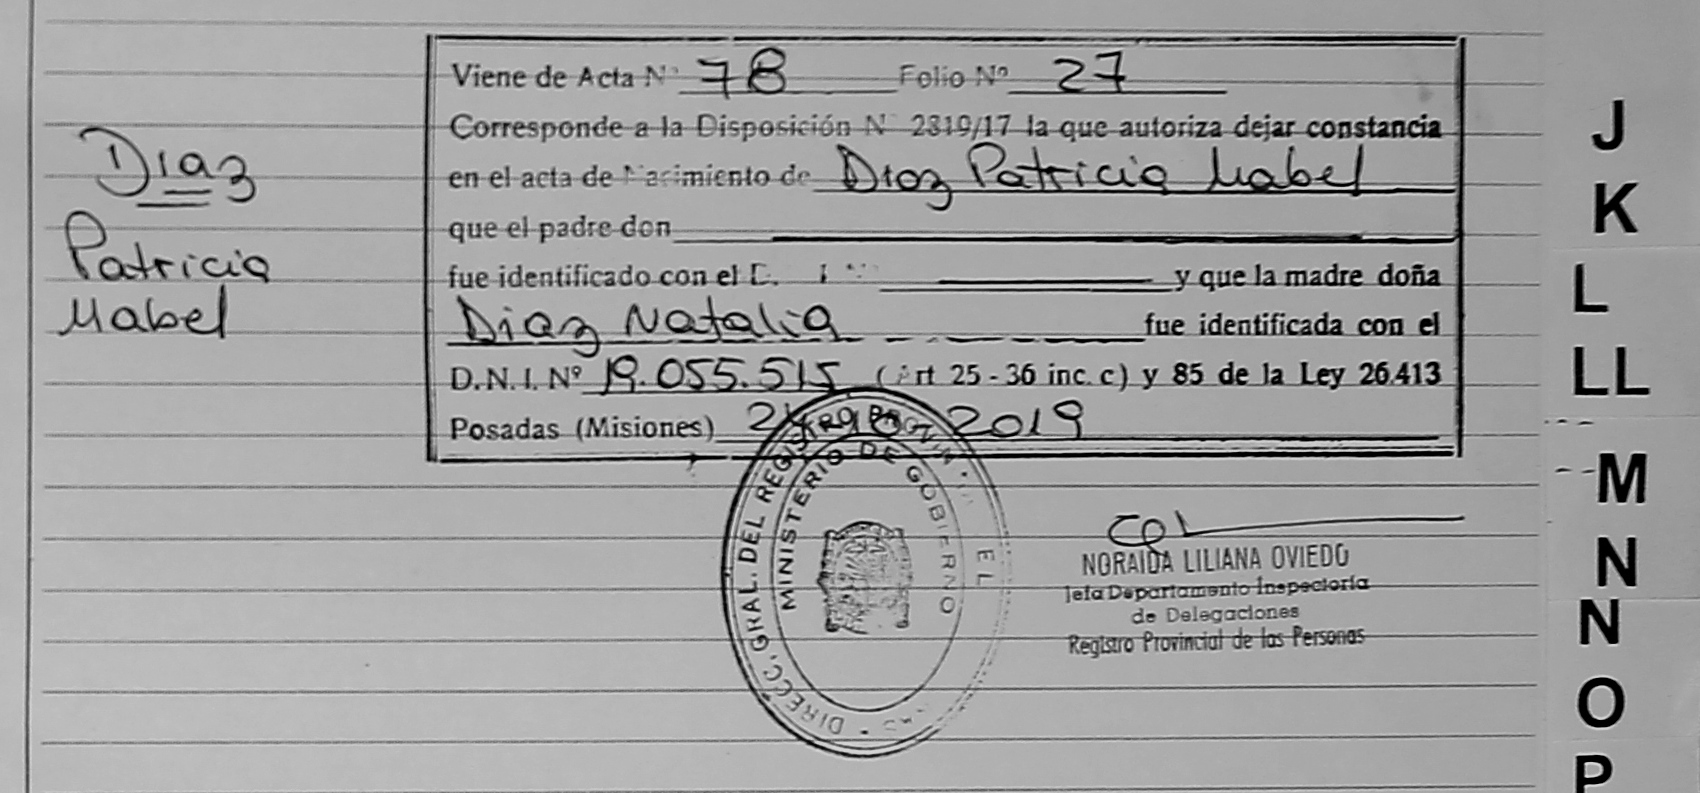 Viene de Acta N° 78 Folio Nº 27
Corresponde a la Disposición N° 2819/17 la que autoriza dejar constancia
en el acta de Nacimiento de Diaz Patricia Mabel
que el padre don
fue identificado con el D. y que la madre doña
Diaz Natalia fue identificada con el
D.N.I. Nº 19.055.515 (Art 25 - 36 inc. c) y 85 de la Ley 26.413
Posadas (Misiones) 2019
Diaz
Patricia
Mabel
DIRECC. GRAL. DEL REGISTRO PROVIN
MINISTERIO DE GOBIERNO
NORAIDA LILIANA OVIEDO
Jefa Departamento Inspectoría
de Delegaciones
Registro Provincial de las Personas
J
K
L
LL
M
N
N
O
P